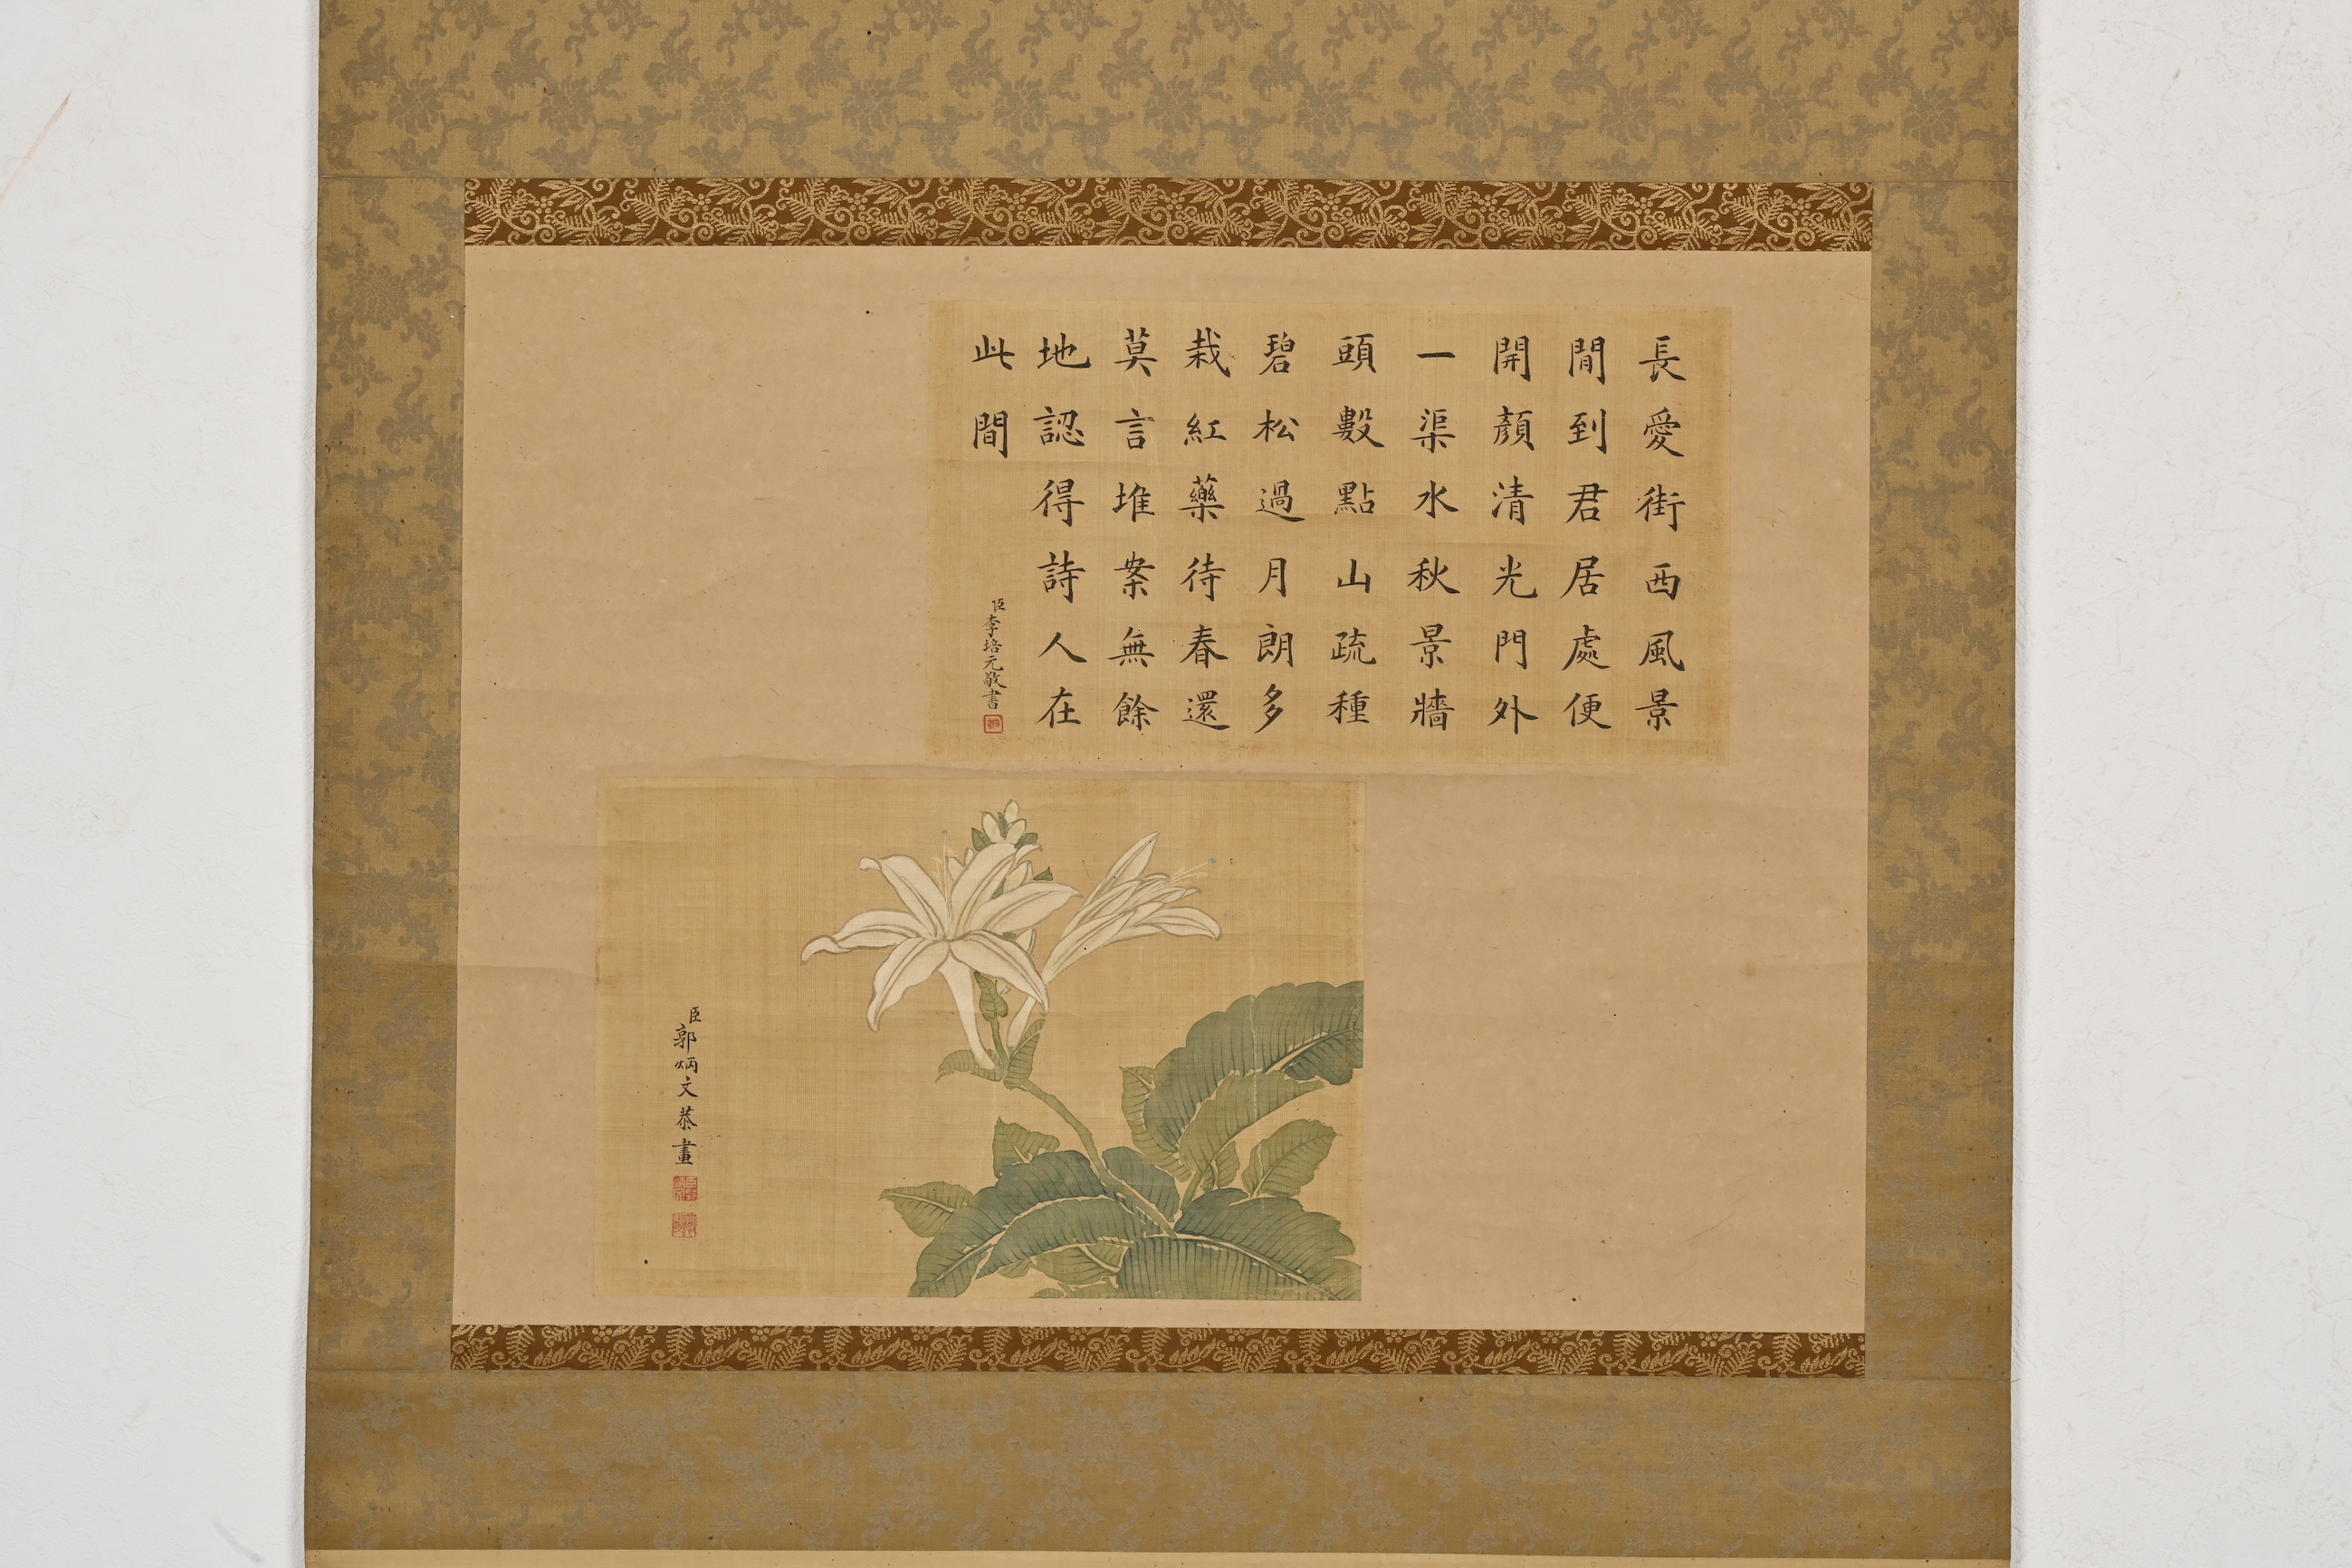 長愛街西風景
閒到君居處便
開顏清光門外
一渠水秋景牆
頭數點山疏種
碧松過月朗多
栽紅藥待春還
莫言堆案無餘
地認得詩人在
此間
臣李培元敬書
臣郭炳文恭畫